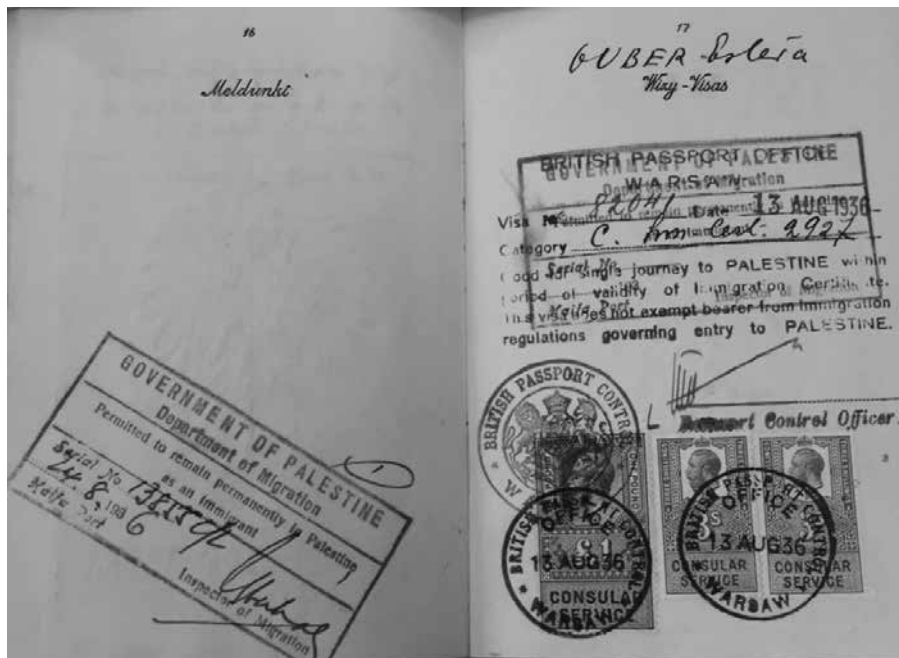 16
Meldunki
GOVERNMENT OF PALESTINE
Department of Migration
Permitted to remain permanently in Palestine
as an Immigrant
Serial No 13855
24.8.1936
Haifa Port
Inspector of Migration
17
GUBER Estera
Wizy-Visas
BRITISH PASSPORT OFFICE
WARSAW
Visa No 82041 Date 13 AUG 1936
Category C. Imm Cert. 2927
Good for single journey to PALESTINE within
period of validity of Immigration Certificate.
This visa does not exempt bearer from immigration
regulations governing entry to PALESTINE.
GOVERNMENT OF PALESTINE
Department of Migration
Permitted to remain permanently
Serial No.
Haifa Port
Inspector of Migration
Passport Control Officer.
BRITISH PASSPORT CONTROL
W
BRITISH PASSPORT CONTROL
OFFICE
13 AUG 36
WARSAW
£1
CONSULAR
SERVICE
BRITISH PASSPORT CONTROL
OFFICE
13 AUG 36
WARSAW
CONSULAR
SERVICE
CONSULAR
SERVICE